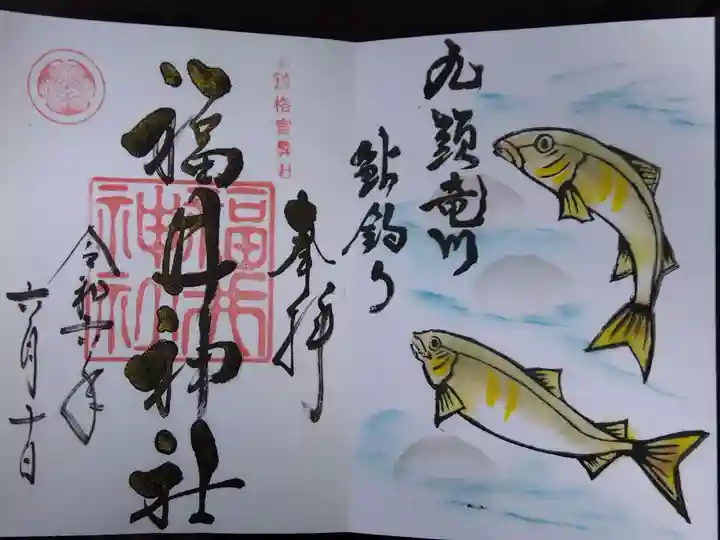 九頭竜川
鮎釣り
奉拝
別格官幣社
福井神社
福井神社
令和六年
六月十日